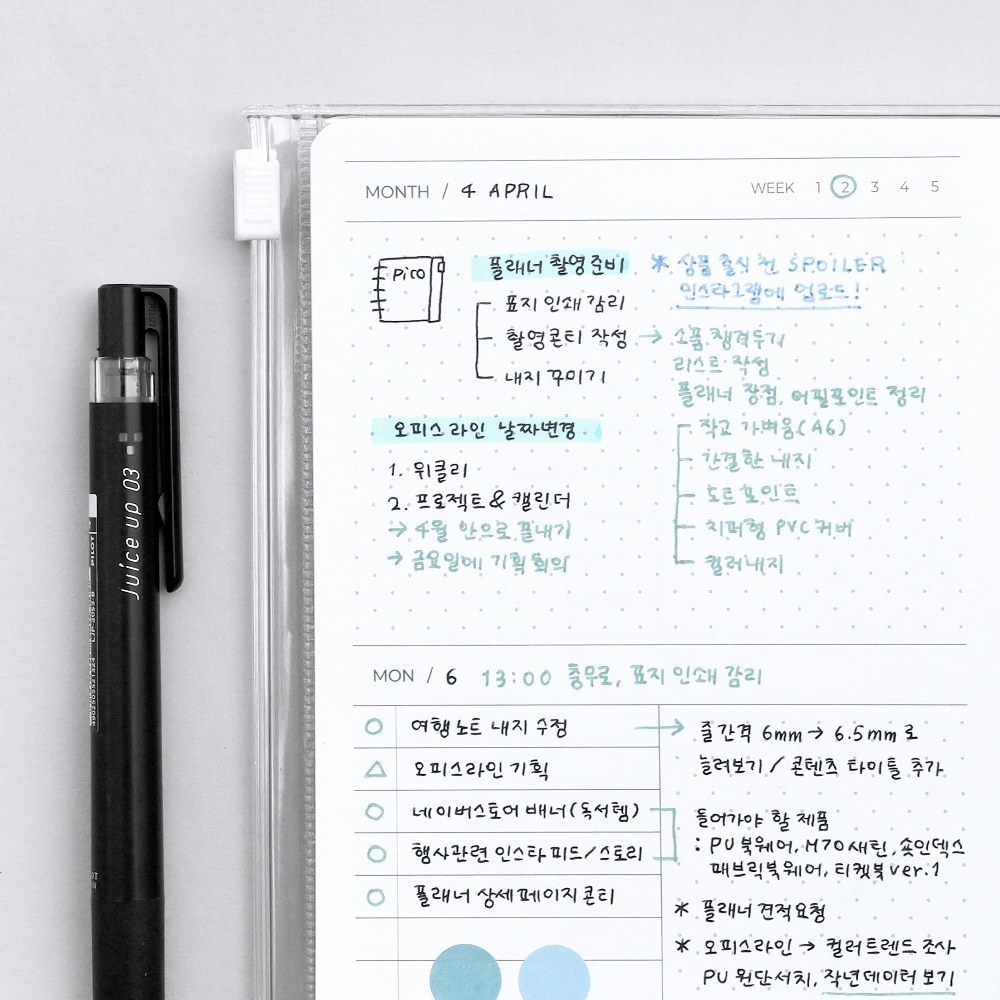 MONTH / 4 APRIL
WEEK 1 2 3 4 5
Pico
플래너 촬영 준비
표지 인쇄 감리
촬영콘티 작성 →
내지 꾸미기
* 상품 출시 전 SPOILER
인스타그램에 업로드!
소품 챙겨두기
리스트 작성
플래너 장점, 어필포인트 정리
작고 가벼움(A6)
간결한 내지
도트 포인트
지퍼형 PVC 커버
컬러내지
오피스라인 날짜변경
1. 위클리
2. 프로젝트 & 캘린더
→ 4월 안으로 끝내기
→ 금요일에 기획회의
MON / 6 13:00 충무로, 표지 인쇄 감리
여행노트 내지 수정
오피스라인 기획
네이버스토어 배너(독서템)
행사관련 인스타 피드/스토리
플래너 상세페이지 콘티
줄간격 6mm → 6.5mm로
늘려보기 / 콘텐츠 타이틀 추가
들어가야 할 제품
: PU 북웨어, M70 새틴, 숏인덱스
패브릭북웨어, 티켓북 ver.1
* 플래너 견적요청
* 오피스라인 → 컬러트렌드 조사
PU 원단서치, 작년데이터 보기
Juice up 03
PILOT
LJP-20S3-B
4902505521324